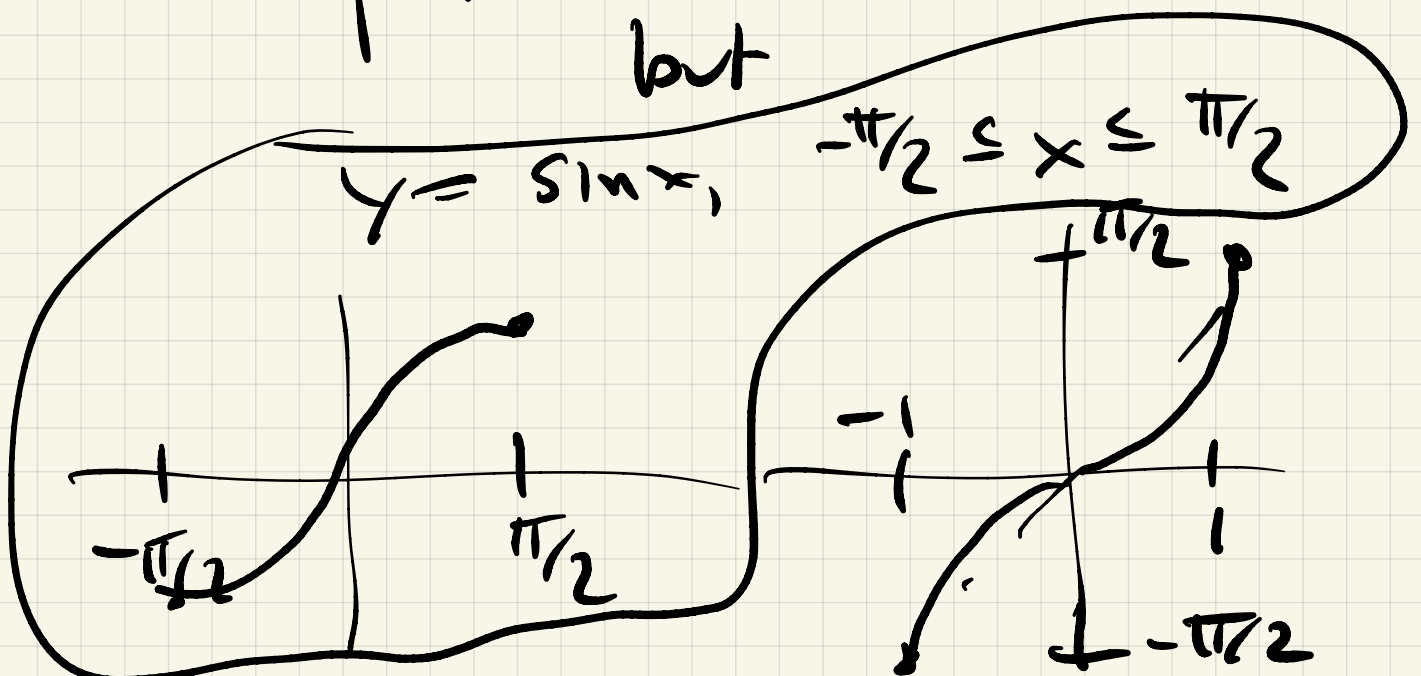 but
y = sin x, -π/2 ≤ x ≤ π/2
π/2
-1
1
-π/2
π/2
-π/2